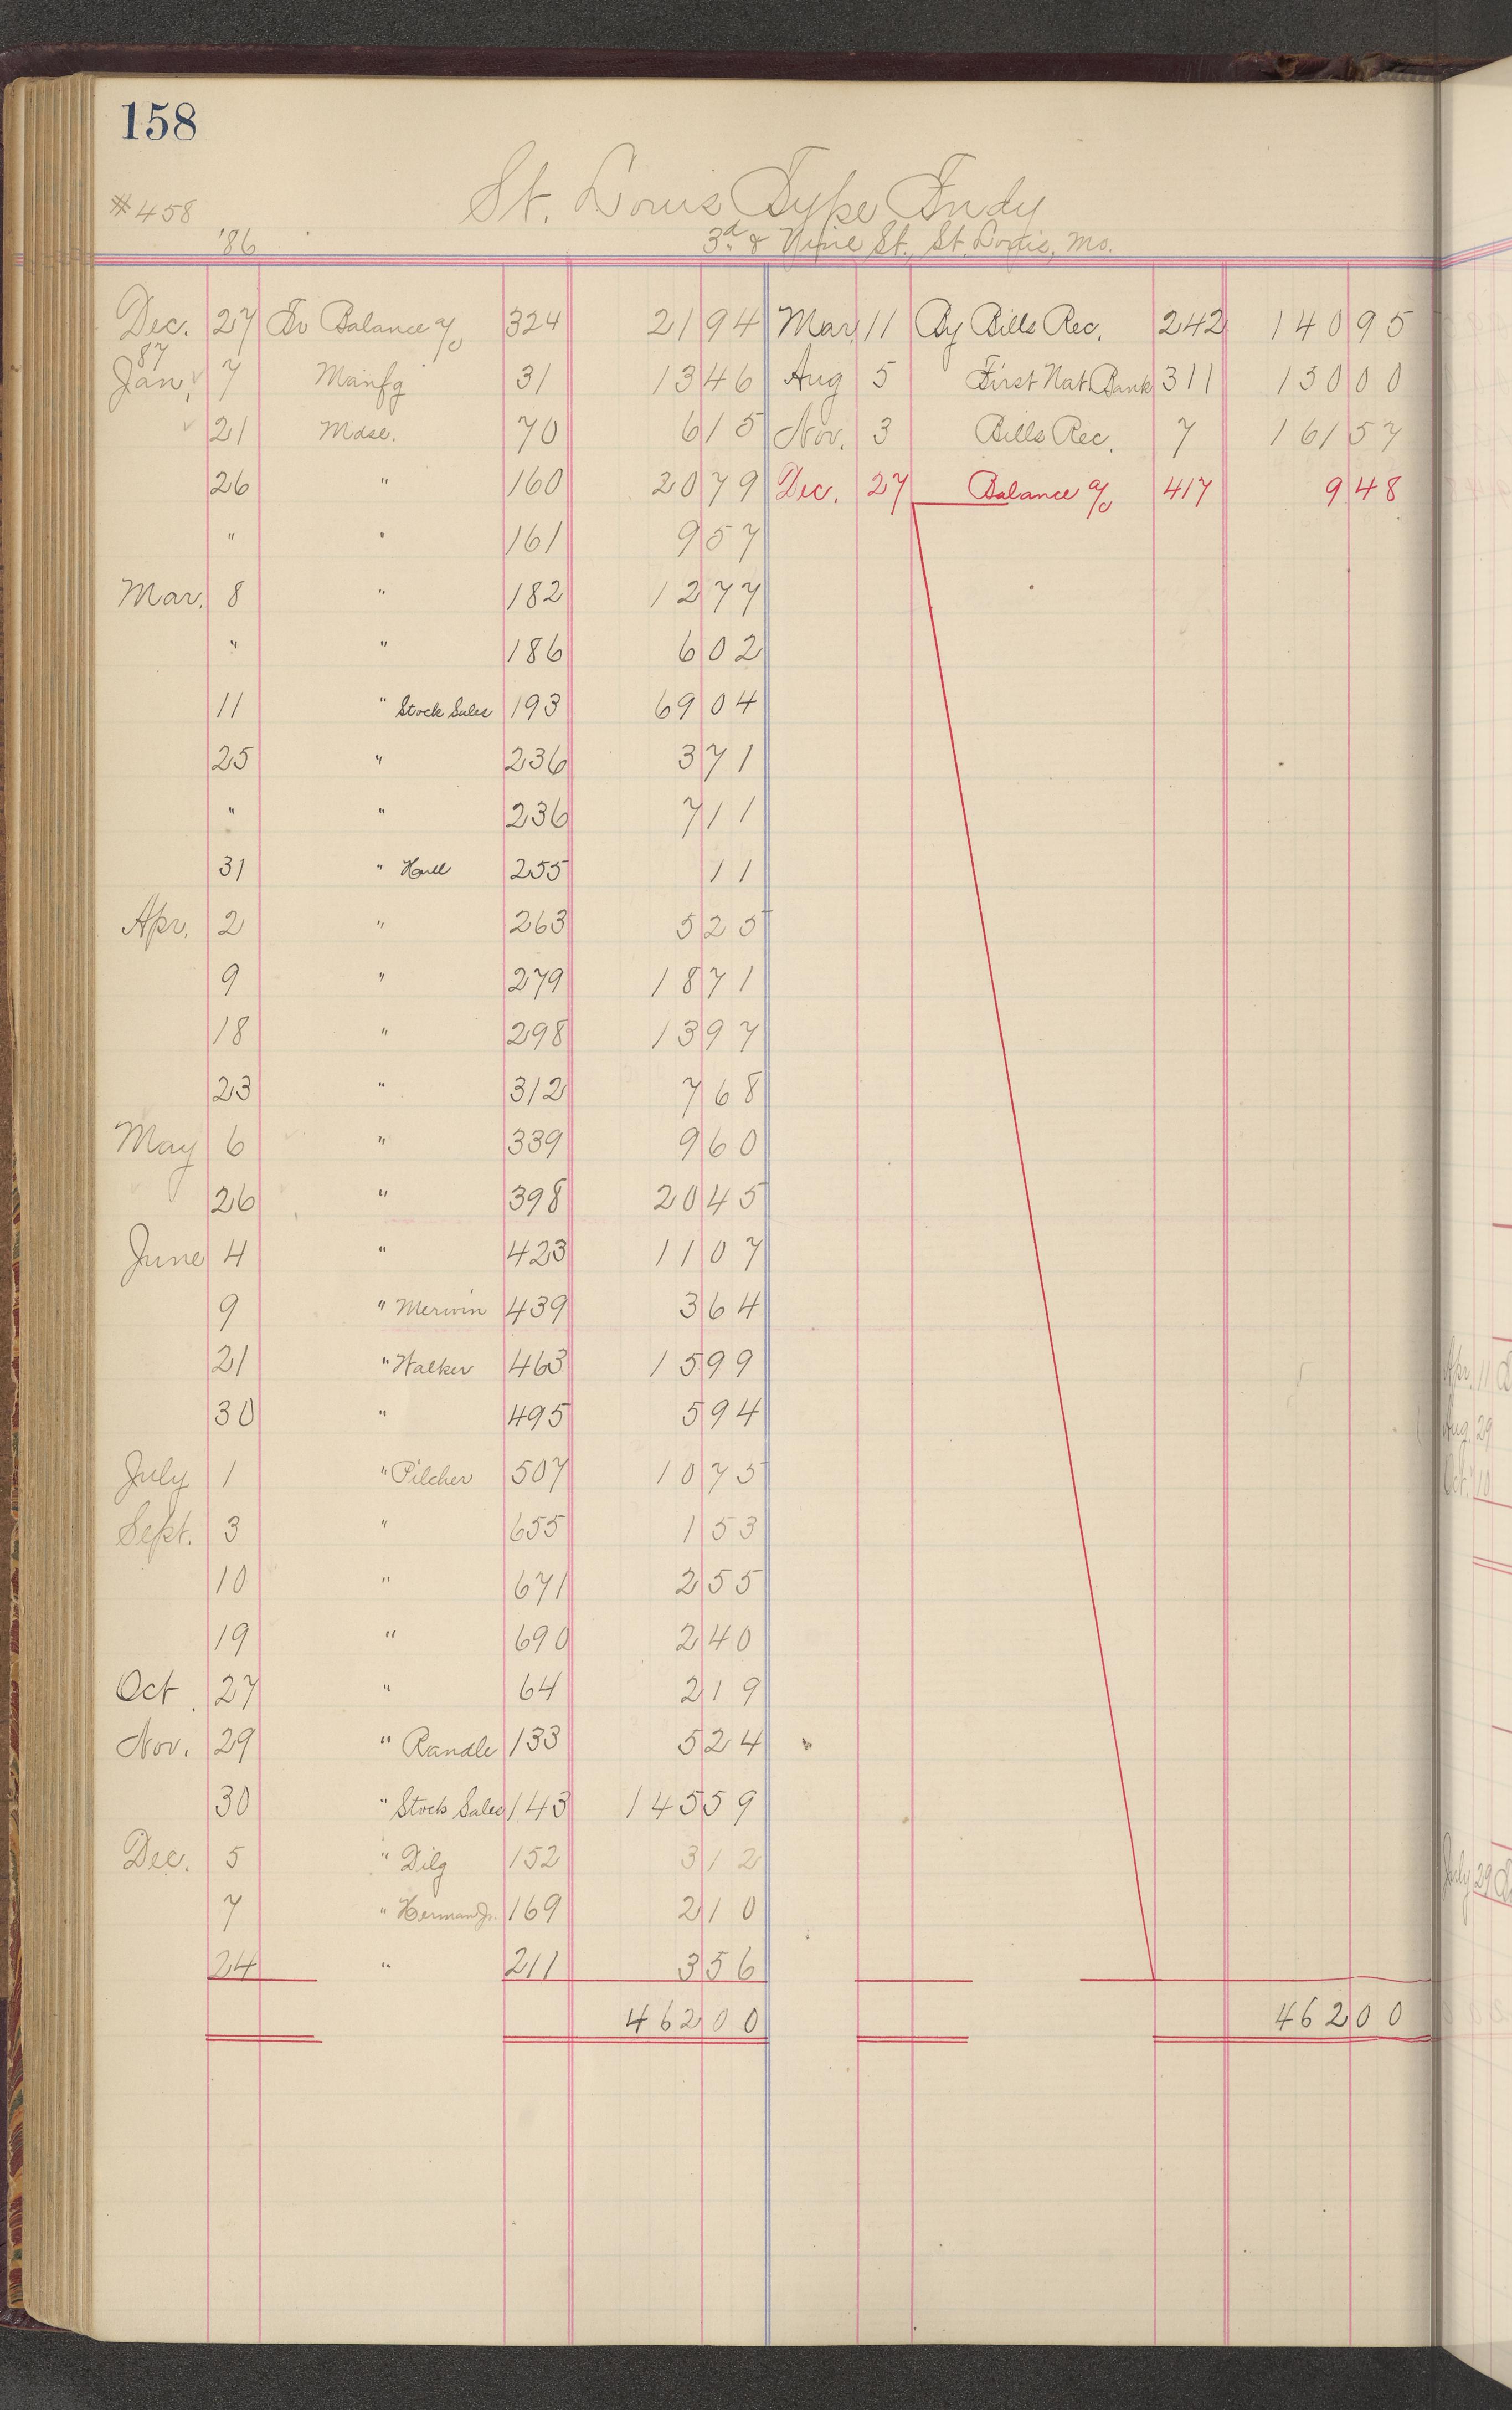 158
#458
St. Louis Type Fndy
'86
3d & Vine St., St. Louis, Mo.
Dec. 27 To Balance a/c 324 21 94 Mar. 11 By Bills Rec. 242 140 95
'87
Jan. 7 Manfg 31 13 46 Aug 5 First Nat Bank 311 150 00
21 Mdse. 70 6 15 Nov. 3 Bills Rec. 7 161 57
26 " 160 20 79 Dec. 27 Balance a/c 417 9 48
" " 161 9 57
Mar. 8 " 182 12 77
" " 186 6 02
11 " Stock Sales 193 69 04
25 " 236 3 71
" " 236 7 11
31 " Hull 255 11
Apr. 2 " 263 5 25
9 " 279 18 71
18 " 298 13 97
23 " 312 7 68
May 6 " 339 9 60
26 " 398 20 45
June 4 " 423 11 07
9 " Merwin 439 3 64
21 " Walker 463 15 99
30 " 495 5 94
July 1 " Pilcher 507 10 75
Sept. 3 " 655 1 53
10 " 671 2 55
19 " 690 2 40
Oct. 27 " 64 2 19
Nov. 29 " Randle 133 5 24
30 " Stock Sales 143 145 59
Dec. 5 " Dilg 152 3 12
7 " Herman Jr. 169 2 10
24 " 211 3 56
462 00 462 00
Apr. 11
Aug. 29
Oct. 10
July 29